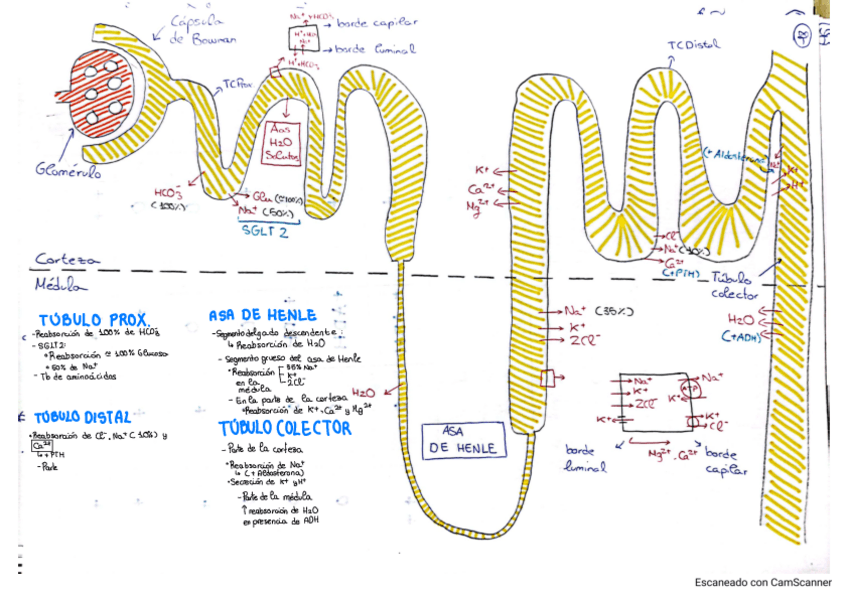 Cápsula
de Bowman
Na⁺ HCO₃⁻
borde capilar
borde luminal
H⁺ HCO₃⁻
TCProx
Aas
H2O
Solutos
Glomérulo
HCO₃⁻
(100%)
Glu (≈100%)
Na⁺ (50%)
SGLT 2
Corteza
Médula
TCDistal
(+ Aldosterona)
Na⁺
K⁺
H⁺
K⁺
Ca²⁺
Mg²⁺
Cl⁻
Na⁺ (10%)
Ca²⁺
(+PTH)
Túbulo
colector
H2O
(+ADH)
Na⁺ (35%)
K⁺
2Cl⁻
H2O
ASA
DE HENLE
Na⁺
K⁺
2Cl⁻
K⁺
Na⁺
K⁺
K⁺
Cl⁻
borde
luminal
Mg²⁺. Ca²⁺
borde
capilar
TÚBULO PROX.
-Reabsorción de 100% de HCO₃⁻
- SGLT2:
•Reabsorción ≈ 100% Glucosa
•50% de Na⁺
- Tb de aminoácidos
TÚBULO DISTAL
•Reabsorción de Cl⁻, Na⁺ (10%) y
Ca²⁺
↳ + PTH
- Parte
ASA DE HENLE
-Segmento delgado descendente:
↳ Reabsorción de H2O
- Segmento grueso del asa de Henle
•Reabsorción
en la
médula
35% Na⁺
K⁺
2Cl⁻
- En la parte de la corteza
•Reabsorción de K⁺, Ca²⁺ y Mg²⁺
TÚBULO COLECTOR
- Parte de la corteza
•Reabsorción de Na⁺
↳ (+ Aldosterona)
•Secreción de K⁺ y H⁺
- Parte de la médula
↑ reabsorción de H2O
en presencia de ADH
Escaneado con CamScanner